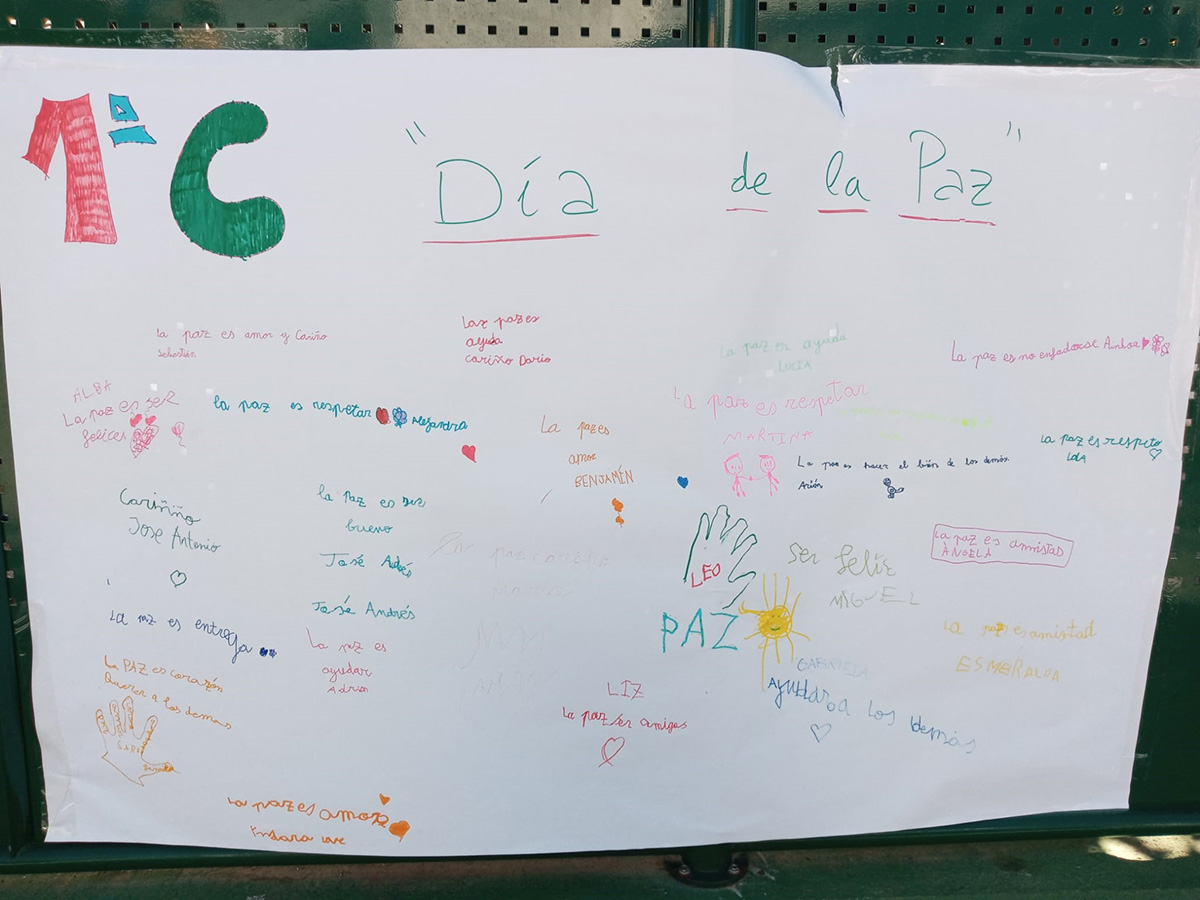 1ª C
"Día de la Paz"
La paz es amor y Cariño
Sebastián
La paz es
ayuda
cariño Dario
La paz es ayuda
LUCIA
La paz es no enfadarse Ainhoa
ALBA
La paz es ser
felices
la paz es respetar Alejandra
La paz es
amor
BENJAMÍN
La paz es respetar
MARTINA
La paz es hacer el bien de los demás
La paz es respeto
Lola
Cariñño
Jose Antonio
la paz es ser
bueno
José Andrés
José Andrés
LEO
PAZ
Ser feliz
MIGUEL
La paz es amistas
ÀNGELA
La paz es entrega
La paz es
ayudar
Adrian
La paz es amistad
ESMERALDA
La PAZ es corazón
Querer a los demas
LIZ
La paz es amigos
GABRIELA
Ayudar a los demás
La paz es amor